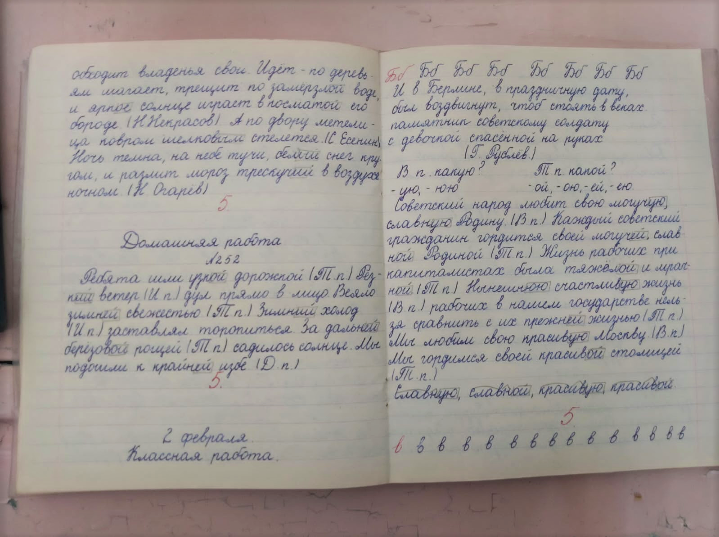 обходит владенья свои. Идёт - по деревь-
ям шагает, трещит по замёрзлой воде,
и яркое солнце играет в косматой его
бороде. (Н.Некрасов) А по двору метели-
ца ковром шелковым стелется. (С. Есенин)
Ночь темна, на небе тучи, белый снег кру-
гом, и разлит мороз трескучий в воздухе
ночном. (Н. Огарёв)
5
Домашняя работа
№252
Ребята шли узкой дорожкой (Т.п.) Рез-
кий ветер (И.п.) дул прямо в лицо. Веяло
зимней свежестью (Т.п.) Зимний холод
(И.п.) заставлял торопиться. За дальней
берёзовой рощей (Т.п.) садилось солнце. Мы
подошли к крайней избе (Д.п.)
5
2 февраля.
Классная работа.
Бб Бб Бб Бб Бб Бб Бб Бб
И в Берлине, в праздничную дату,
был воздвигнут, чтоб стоять в веках
памятник советскому солдату
с девочкой спасённой на руках
(Г. Рублёв.)
В п. какую? Т п. какой?
- ую, - юю -ой, -ою, -ей, -ею.
Советский народ любит свою могучую,
славную Родину. (В.п.) Каждый советский
гражданин гордится своей могучей, слав-
ной Родиной (Т.п.) Жизнь рабочих при
капиталистах была тяжёлой и мрач-
ной. (Т.п.) Нынешнюю счастливую жизнь
(В.п.) рабочих в нашем государстве нель-
зя сравнить с их прежней жизнью (Т.п.)
Мы любим свою красивую Москву (В.п.)
Мы гордимся своей красивой столицей
(Т.п.)
Славную, славной, красивую, красивой
5
в в в в в в в в в в в в в в в в